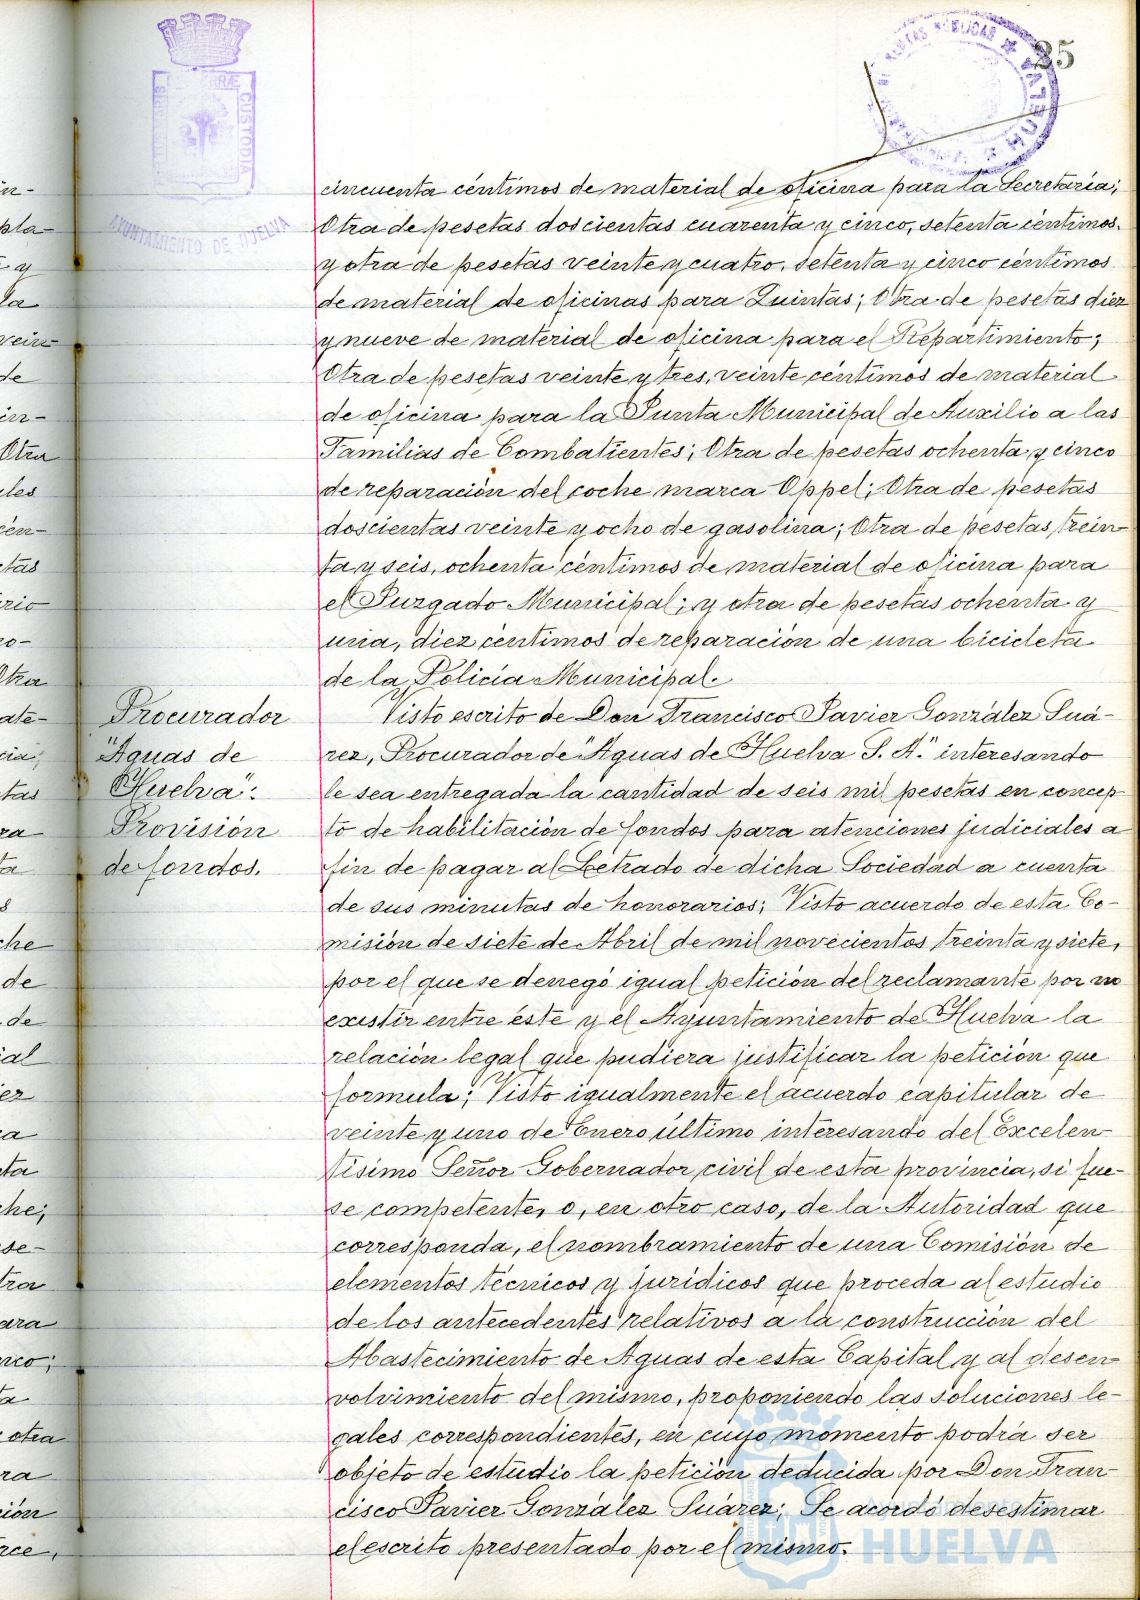 35
PORTUS MARIS ET TERRÆ CUSTODIA
AYUNTAMIENTO DE HUELVA
HUELVA
cincuenta céntimos de material de oficina para la Secretaría;
Otra de pesetas doscientas cuarenta y cinco, setenta céntimos.
y otra de pesetas veinte y cuatro, setenta y cinco céntimos
de material de oficinas para Quintas; Otra de pesetas diez
y nueve de material de oficina para el Repartimiento;
Otra de pesetas veinte y tres, veinte céntimos de material
de oficina para la Junta Municipal de Auxilio a las
Familias de Combatientes; Otra de pesetas ochenta y cinco
de reparación del coche marca Oppel; Otra de pesetas
doscientas veinte y ocho de gasolina; Otra de pesetas trein-
ta y seis, ochenta céntimos de material de oficina para
el Juzgado Municipal; y otra de pesetas ochenta y
una, diez céntimos de reparación de una bicicleta
de la Policía Municipal.
Procurador
"Aguas de
Huelva".
Provisión
de fondos.
Visto escrito de Don Francisco Javier González Suá-
rez, Procurador de "Aguas de Huelva S. A." interesando
le sea entregada la cantidad de seis mil pesetas en concep-
to de habilitación de fondos para atenciones judiciales a
fin de pagar al Letrado de dicha Sociedad a cuenta
de sus minutas de honorarios; Visto acuerdo de esta Co-
misión de siete de Abril de mil novecientos treinta y siete,
por el que se denegó igual petición del reclamante por no
existir entre éste y el Ayuntamiento de Huelva la
relación legal que pudiera justificar la petición que
formula; Visto igualmente el acuerdo capitular de
veinte y uno de Enero último interesando del Excelen-
tísimo Señor Gobernador civil de esta provincia, si fue-
se competente, o, en otro caso, de la Autoridad que
corresponda, el nombramiento de una Comisión de
elementos técnicos y jurídicos que proceda al estudio
de los antecedentes relativos a la construcción del
Abastecimiento de Aguas de esta Capital y al desen-
volvimiento del mismo, proponiendo las soluciones le-
gales correspondientes, en cuyo momento podrá ser
objeto de estudio la petición deducida por Don Fran-
cisco Javier González Suárez; Se acordó desestimar
el escrito presentado por el mismo.
HUELVA